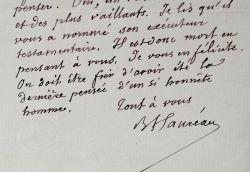 penser. Oui, un
et des plus vaillants. Je lis qu'il
vous a nommé son exécuteur
testamentaire. Il est donc mort en
pensant à vous. Je vous en félicite.
On doit être fier d'avoir été la
dernière pensée d'un si honnête
homme.
Tout à vous
B Hauréau